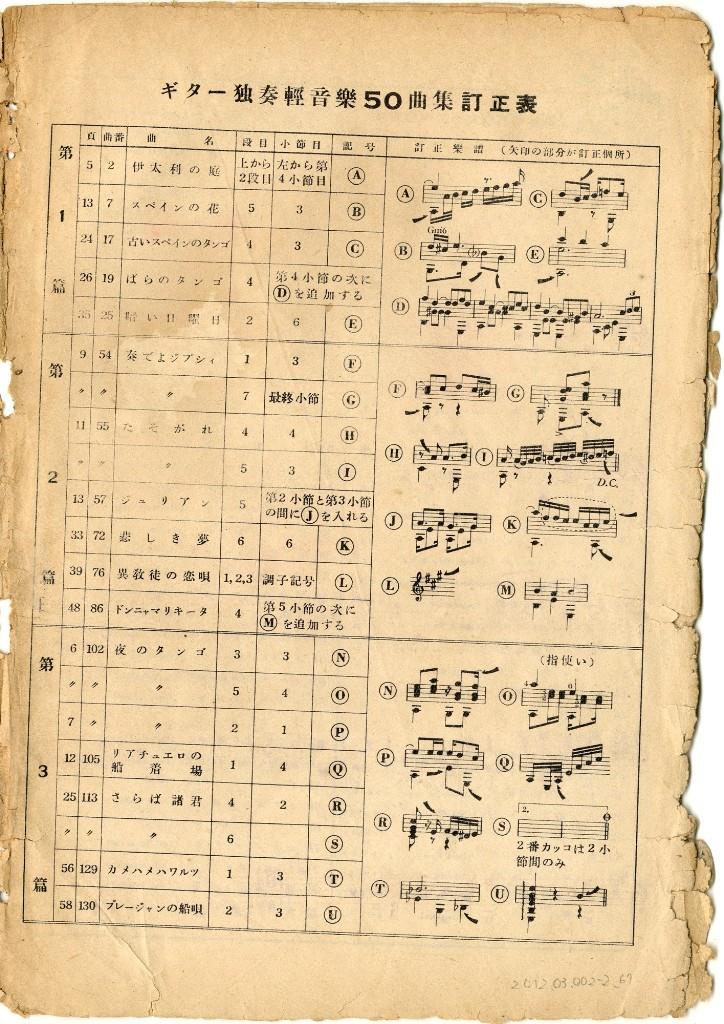 ギター独奏輕音樂50曲集訂正表
頁 曲番 曲名 段目 小節目 記号 訂正樂譜 (矢印の部分が訂正個所)
第1篇
5 2 伊太利の庭 上から2段目 左から第4小節目 Ⓐ
13 7 スペインの花 5 3 Ⓑ
24 17 古いスペインのタンゴ 4 3 Ⓒ
26 19 ばらのタンゴ 4 第4小節の次にⒹを追加する
35 25 暗い日曜日 2 6 Ⓔ
Ⓐ Ⓒ
Ⓑ Ⓔ
Ⓓ
3
第2篇
9 54 奏でよジプシィ 1 3 Ⓕ
〃 〃 〃 7 最終小節 Ⓖ
11 55 たそがれ 4 4 Ⓗ
〃 〃 〃 5 3 Ⓘ
13 57 ジュリアン 5 第2小節と第3小節の間にⒿを入れる
33 72 悲しき夢 6 6 Ⓚ
39 76 異敎徒の恋唄 1,2,3 調子記号 Ⓛ
48 86 ドンニャマリキータ 4 第5小節の次にⓂを追加する
Ⓕ Ⓖ
Ⓗ Ⓘ
D.C.
Ⓙ Ⓚ
Ⓛ Ⓜ
第3篇
6 102 夜のタンゴ 3 3 Ⓝ
〃 〃 〃 5 4 Ⓞ
7 〃 〃 2 1 Ⓟ
12 105 リアチュエロの船着場 1 4 Ⓠ
25 113 さらば諸君 4 2 Ⓡ
〃 〃 〃 6 Ⓢ
56 129 カメハメハワルツ 1 3 Ⓣ
58 130 ブレージャンの船唄 2 3 Ⓤ
(指使い)
Ⓝ Ⓞ
Ⓟ Ⓠ
Ⓡ Ⓢ
2.
2番カッコは2小
節間のみ
Ⓣ Ⓤ
2012.03.002-2_67